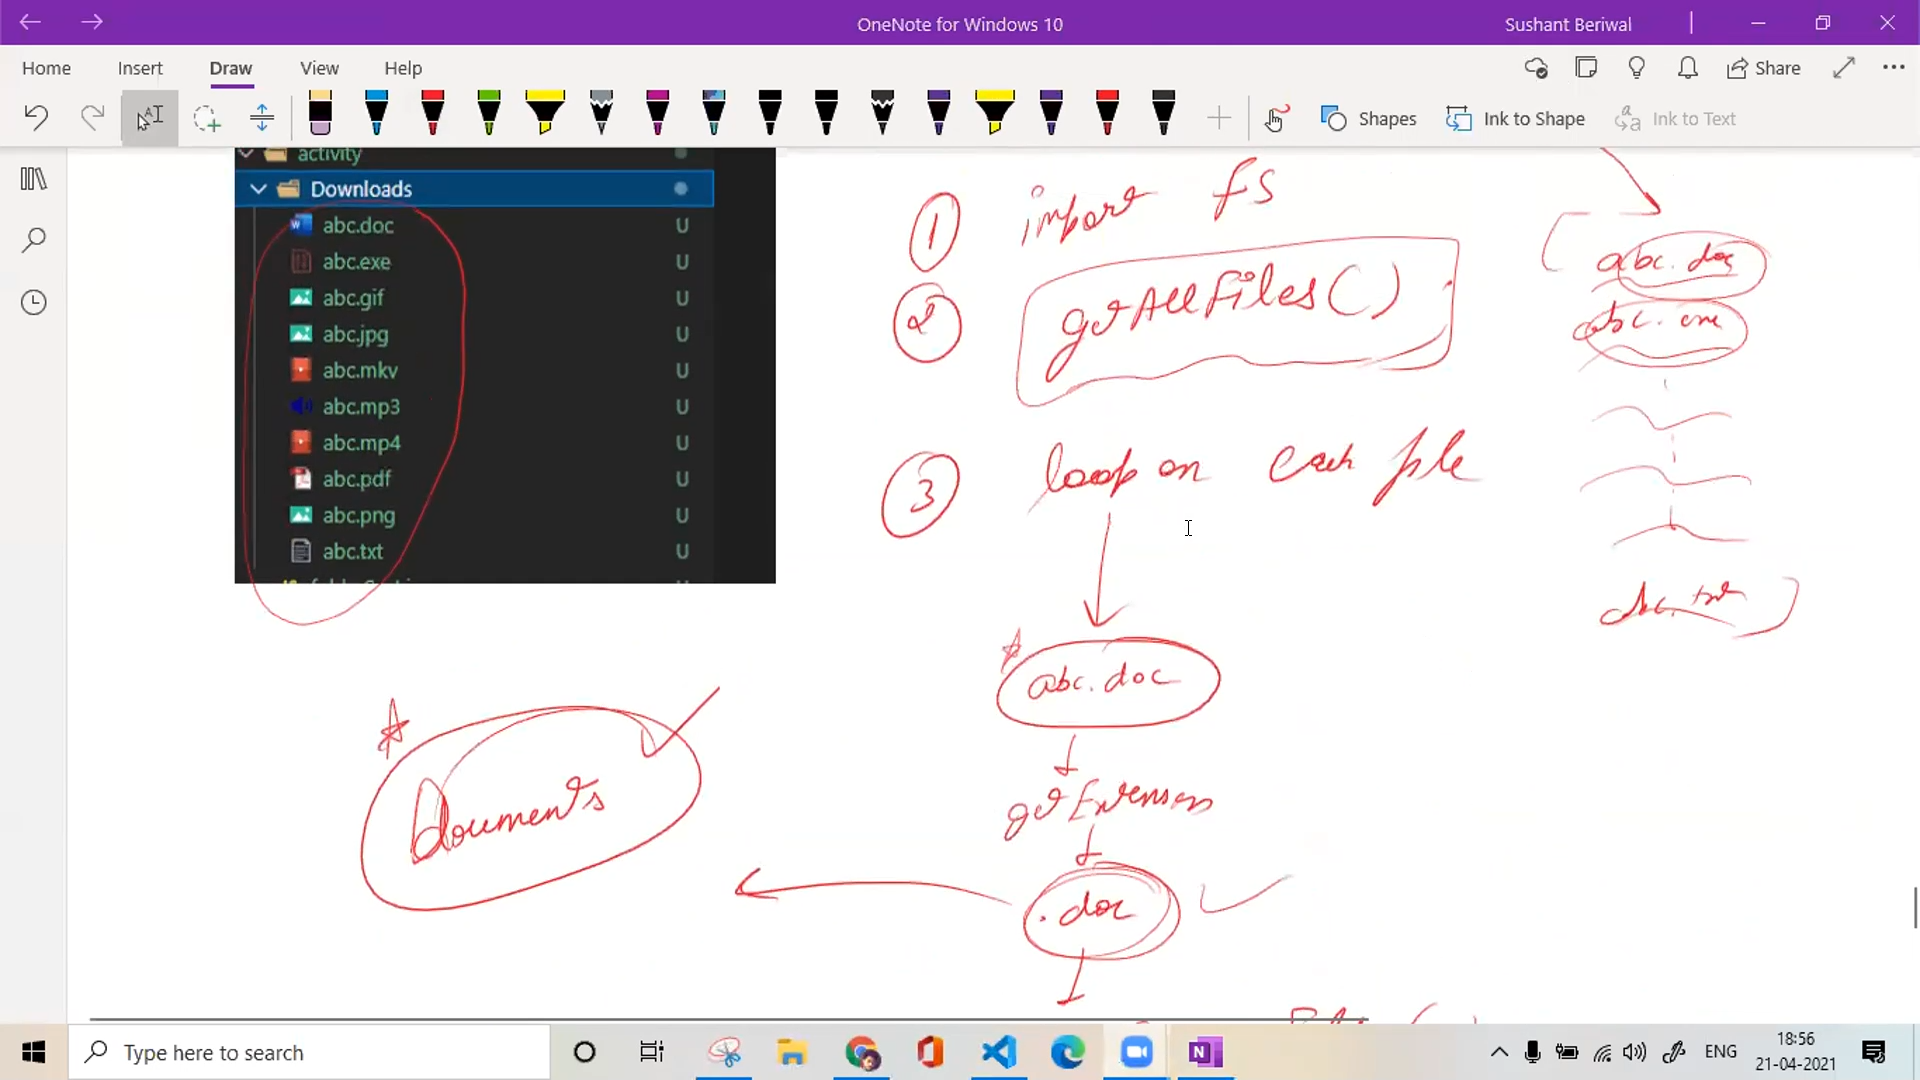 OneNote for Windows 10
Sushant Beriwal
Home
Insert
Draw
View
Help
Share
Shapes
Ink to Shape
Ink to Text
activity
Downloads
abc.doc U
abc.exe U
abc.gif U
abc.jpg U
abc.mkv U
abc.mp3 U
abc.mp4 U
abc.pdf U
abc.png U
abc.txt U
1 import fs
2 getAllFiles()
3 loop on each file
abc.doc
.doc
Documents
abc.doc
abc.txt
Type here to search
ENG
18:56
21-04-2021